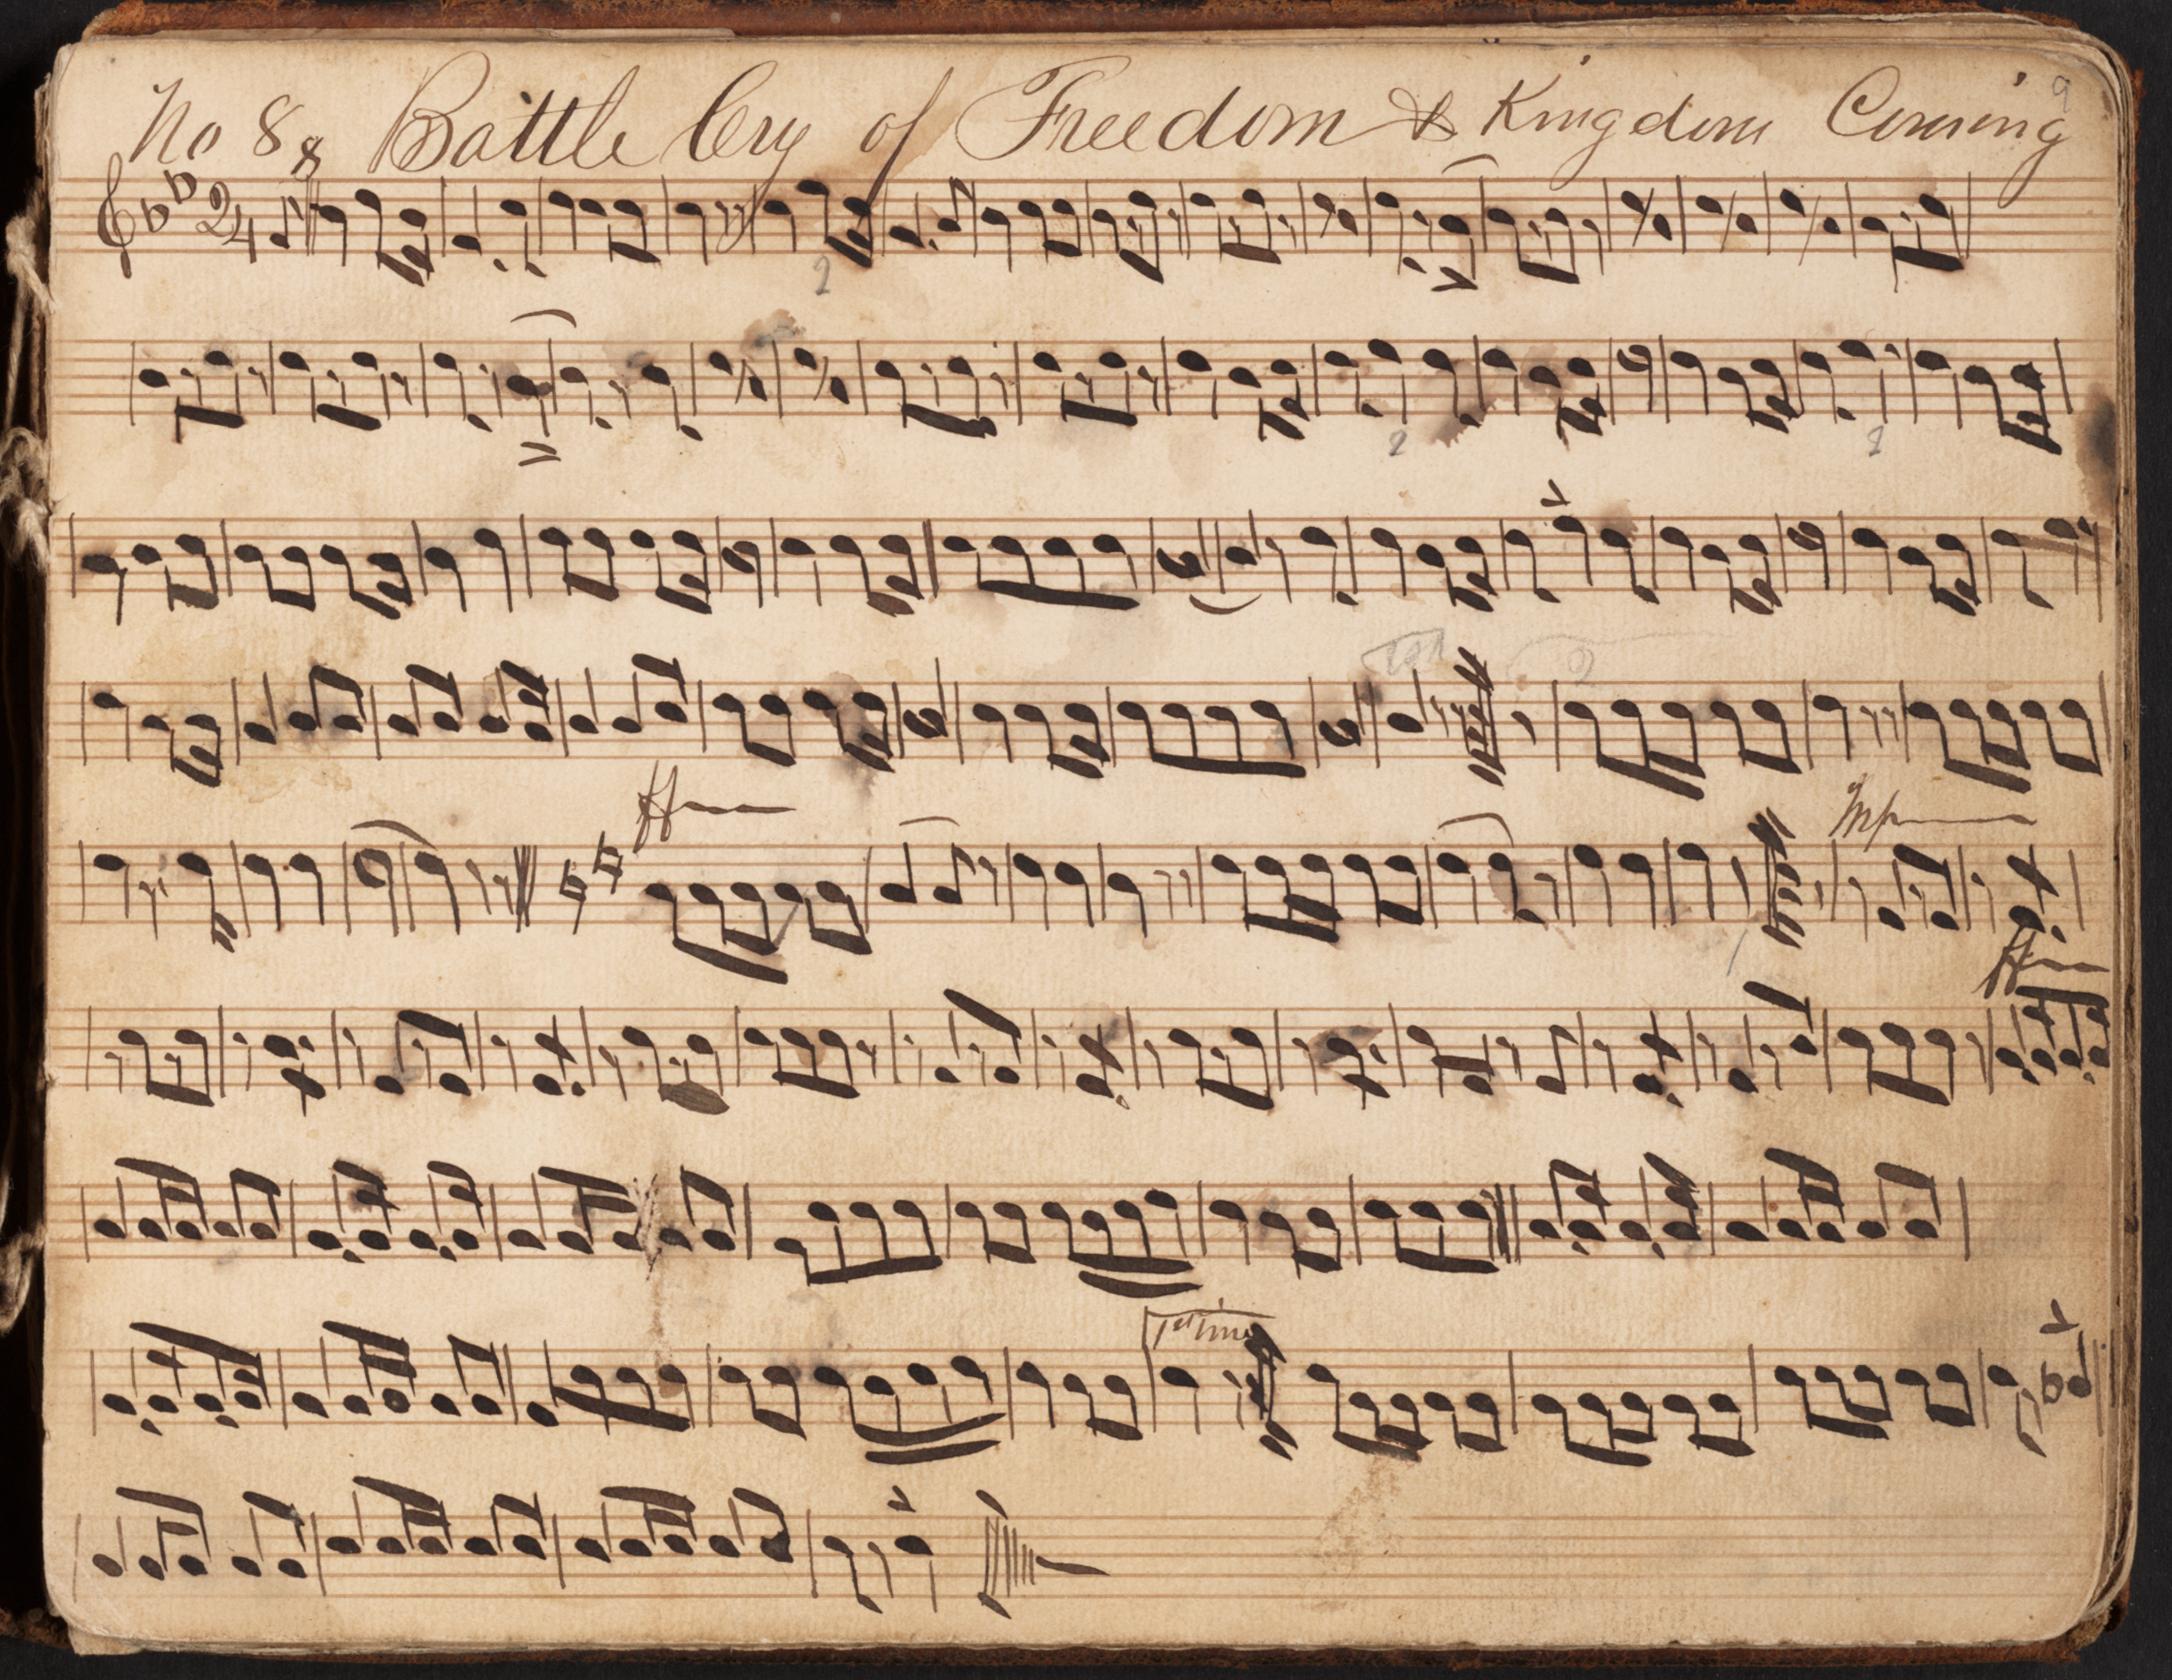 No 8 Battle Cry of Freedom & Kingdom Coming
9
2
4
2
2 2
2
ff
Mp
ff
1st time